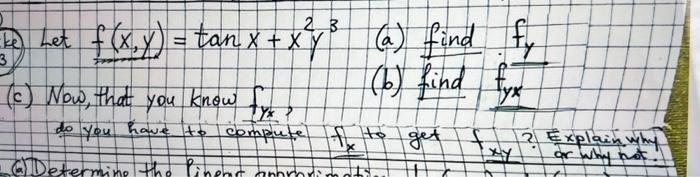 Let f(x,y) = tan x + x²y³ (a) find f_y
(b) find f_yx
(c) Now, that you know f_yx,
do you have to compute f_x to get f_xy? Explain why
or why not.
(a) Determine the linear approximati